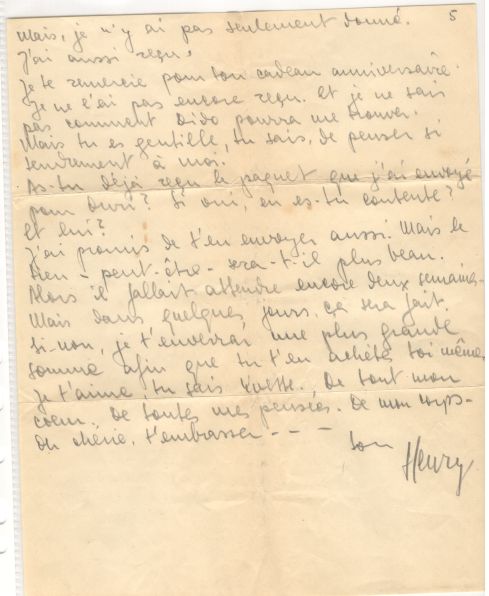 5
Mais, je n'y ai pas seulement donné.
J'ai aussi reçu.
Je te remercie pour ton cadeau anniversaire.
Je ne l'ai pas encore reçu. Et je ne sais
pas comment Dido pourra me trouver.
Mais tu es gentille, tu sais, de penser si
tendrement à moi.
As-tu déjà reçu le paquet que j'ai envoyé
pour ? Si oui, en es-tu contente?
et lui?
J'ai promis de t'en envoyer aussi. Mais le
tien - peut-être - sera-t-il plus beau.
Alors il fallait attendre encore deux semaines.
Mais dans quelques jours, ça sera fait.
Si-non, je t'enverrai une plus grande
somme afin que tu t'en achètes toi même.
Je t'aime, tu sais Yvette. De tout mon
coeur. De toutes mes pensées. De mon corps.
Oh chérie, t'embrasser - - - -
ton
Henry